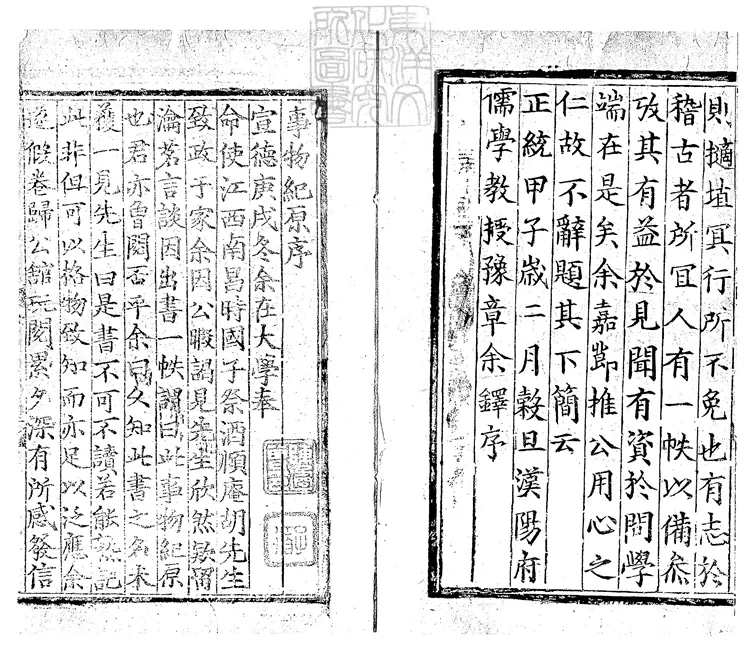 則擿埴冥行所不免也有志於
稽古者所冝人有一帙以備叅
攷其有益於見聞有資於問學
端在是矣余嘉節推公用心之
仁故不辭題其下簡云
正統甲子嵗二月榖旦漢陽府
儒學教授豫章余鐸序
事物紀原序
宣德庚戌冬余在大學奉
命使江西南昌時國子祭酒頥菴胡先生
致政于家余因公暇謁見先生欣然欵留
瀹茗言談因出書一帙謂曰此事物紀原
也君亦曾閱否乎余曰乆知此書之名未
獲一見先生曰是書不可不讀若能熟記
此非但可以格物致知而亦足以泛應余
遂假卷歸公舘玩閱累夕深有所感發信